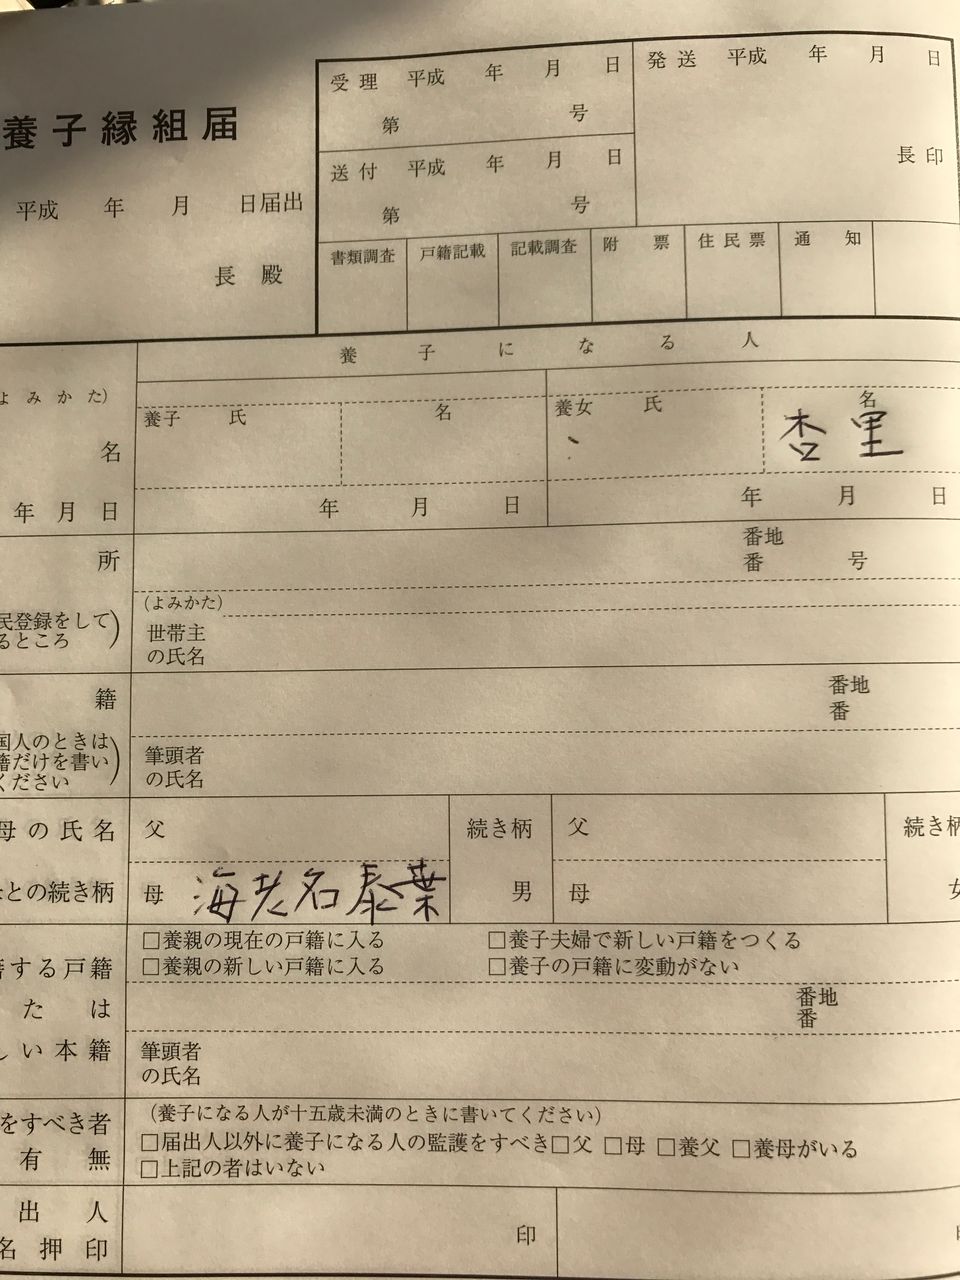 養子縁組届
平成 年 月 日届出
長 殿
受 理 平成 年 月 日
第 号
送 付 平成 年 月 日
第 号
発 送 平成 年 月 日
長 印
書類調査 戸籍記載 記載調査 附 票 住 民 票 通 知
養 子 に な る 人
よ み か た)
養子 氏 名 養女 氏 名
名 杏里
年 月 日 年 月 日 年 月 日
所 番地
番 号
民登録をして
るところ
(よみかた)
世帯主
の氏名
籍 番地
番
国人のときは
籍だけを書い
ください
筆頭者
の氏名
母 の 氏 名 父 続き柄 父 続き柄
との続き柄 母 海老名泰葉 男 母 女
□養親の現在の戸籍に入る □養子夫婦で新しい戸籍をつくる
籍する戸籍 □養親の新しい戸籍に入る □養子の戸籍に変動がない
た は 番地
番
しい本籍 筆頭者
の氏名
(養子になる人が十五歳未満のときに書いてください)
をすべき者 □届出人以外に養子になる人の監護をすべき□父 □母 □養父 □養母がいる
有 無 □上記の者はいない
出 人
名 押 印 印